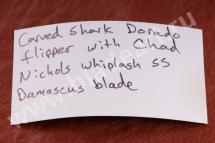 Carved Shark Dorado
flipper with Chad
Nichols whiplash SS
Damascus blade